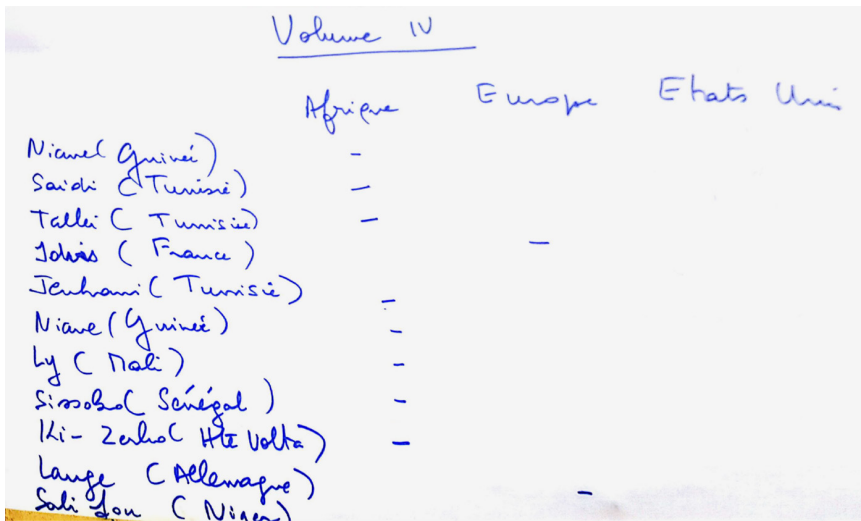 Volume IV
Afrique Europe Etats Unis
Niane( Guinée)
Saidi (Tunisie)
Talbi ( Tunisie)
Idris ( France )
Jenhani( Tunisie)
Niane (Guinée)
Ly ( Mali )
Sissoko( Sénégal )
Ki-Zerbo( Hte Volta)
Lange (Allemagne)
Sali fou ( Niger)